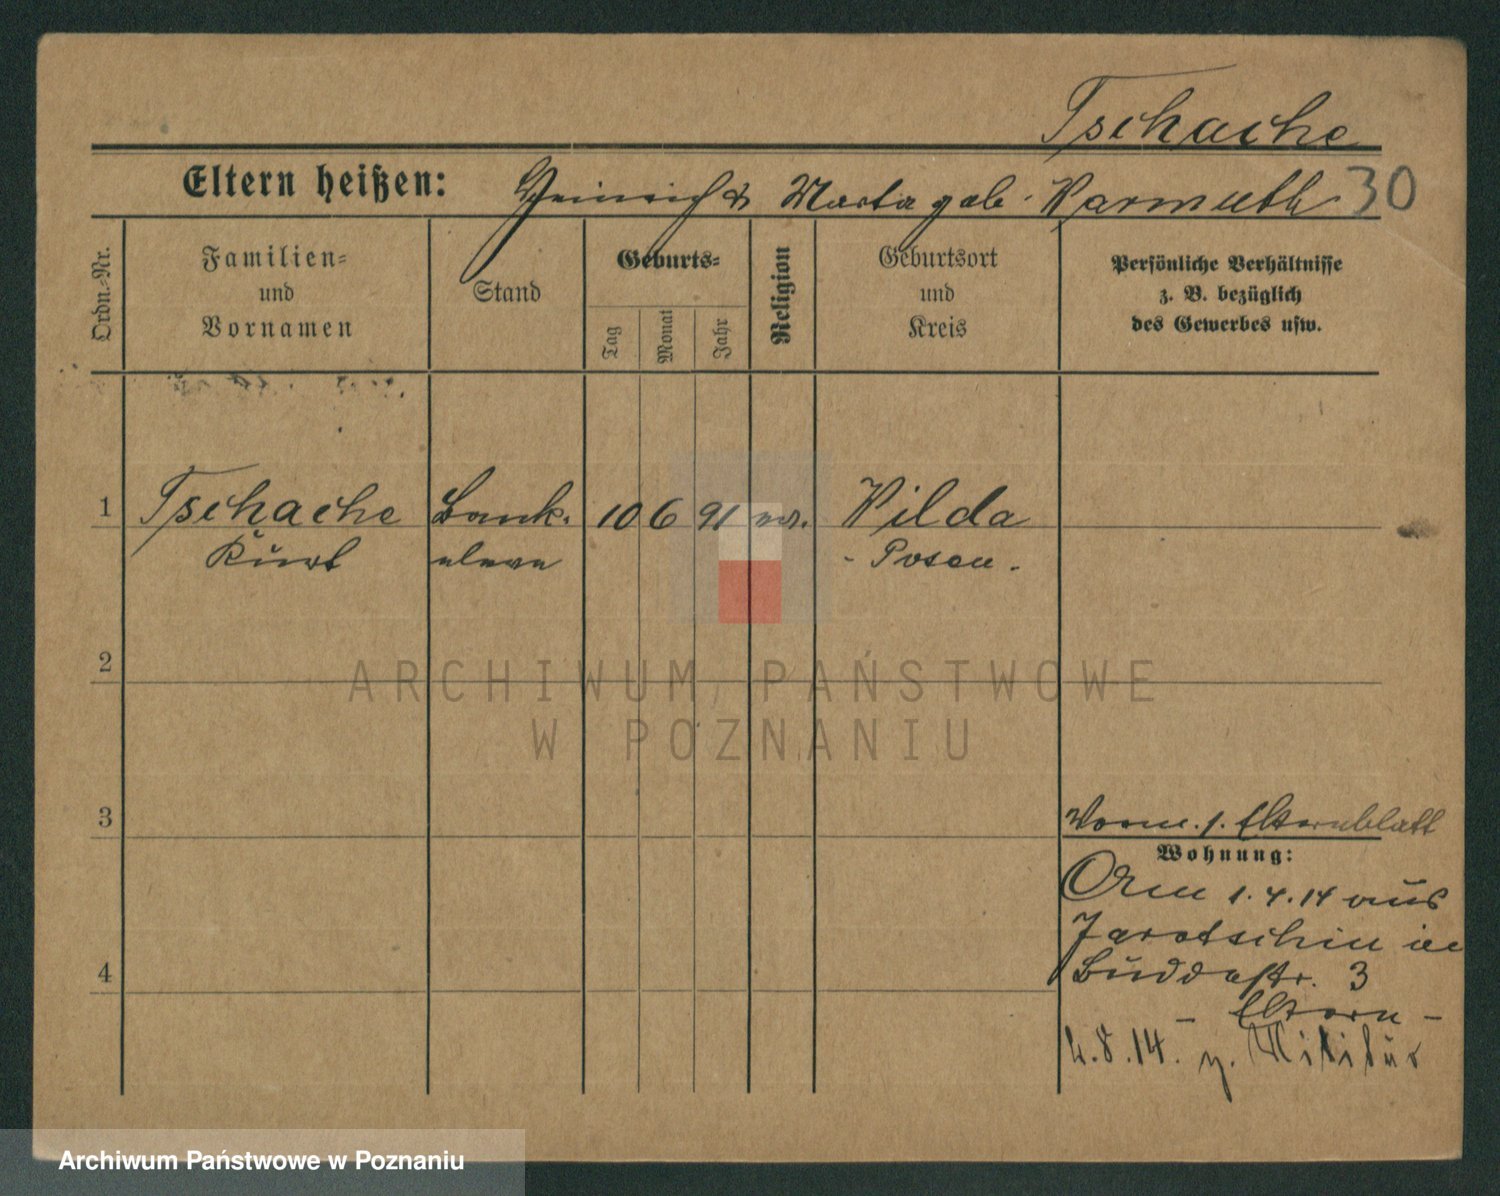 Tschache
Eltern heißen: Heinrich & Marta geb. Warmuth 30
Ordn.-Nr.
Familien-
und
Vornamen
Stand
Geburts-
Tag
Monat
Jahr
Religion
Geburtsort
und
Kreis
Persönliche Verhältnisse
z. B. bezüglich
des Gewerbes usw.
1 Tschache Bank- 10 6 91 ev. Wilda
Kurt eleve - Posen -
2
ARCHIWUM PAŃSTWOWE
W POZNANIU
3
Vorm. s. Elternblatt
Wohnung:
1.4.14 aus
Jarotschin in
4
Buddestr. 3
- Eltern -
4.8.14. z. Militär
Archiwum Państwowe w Poznaniu